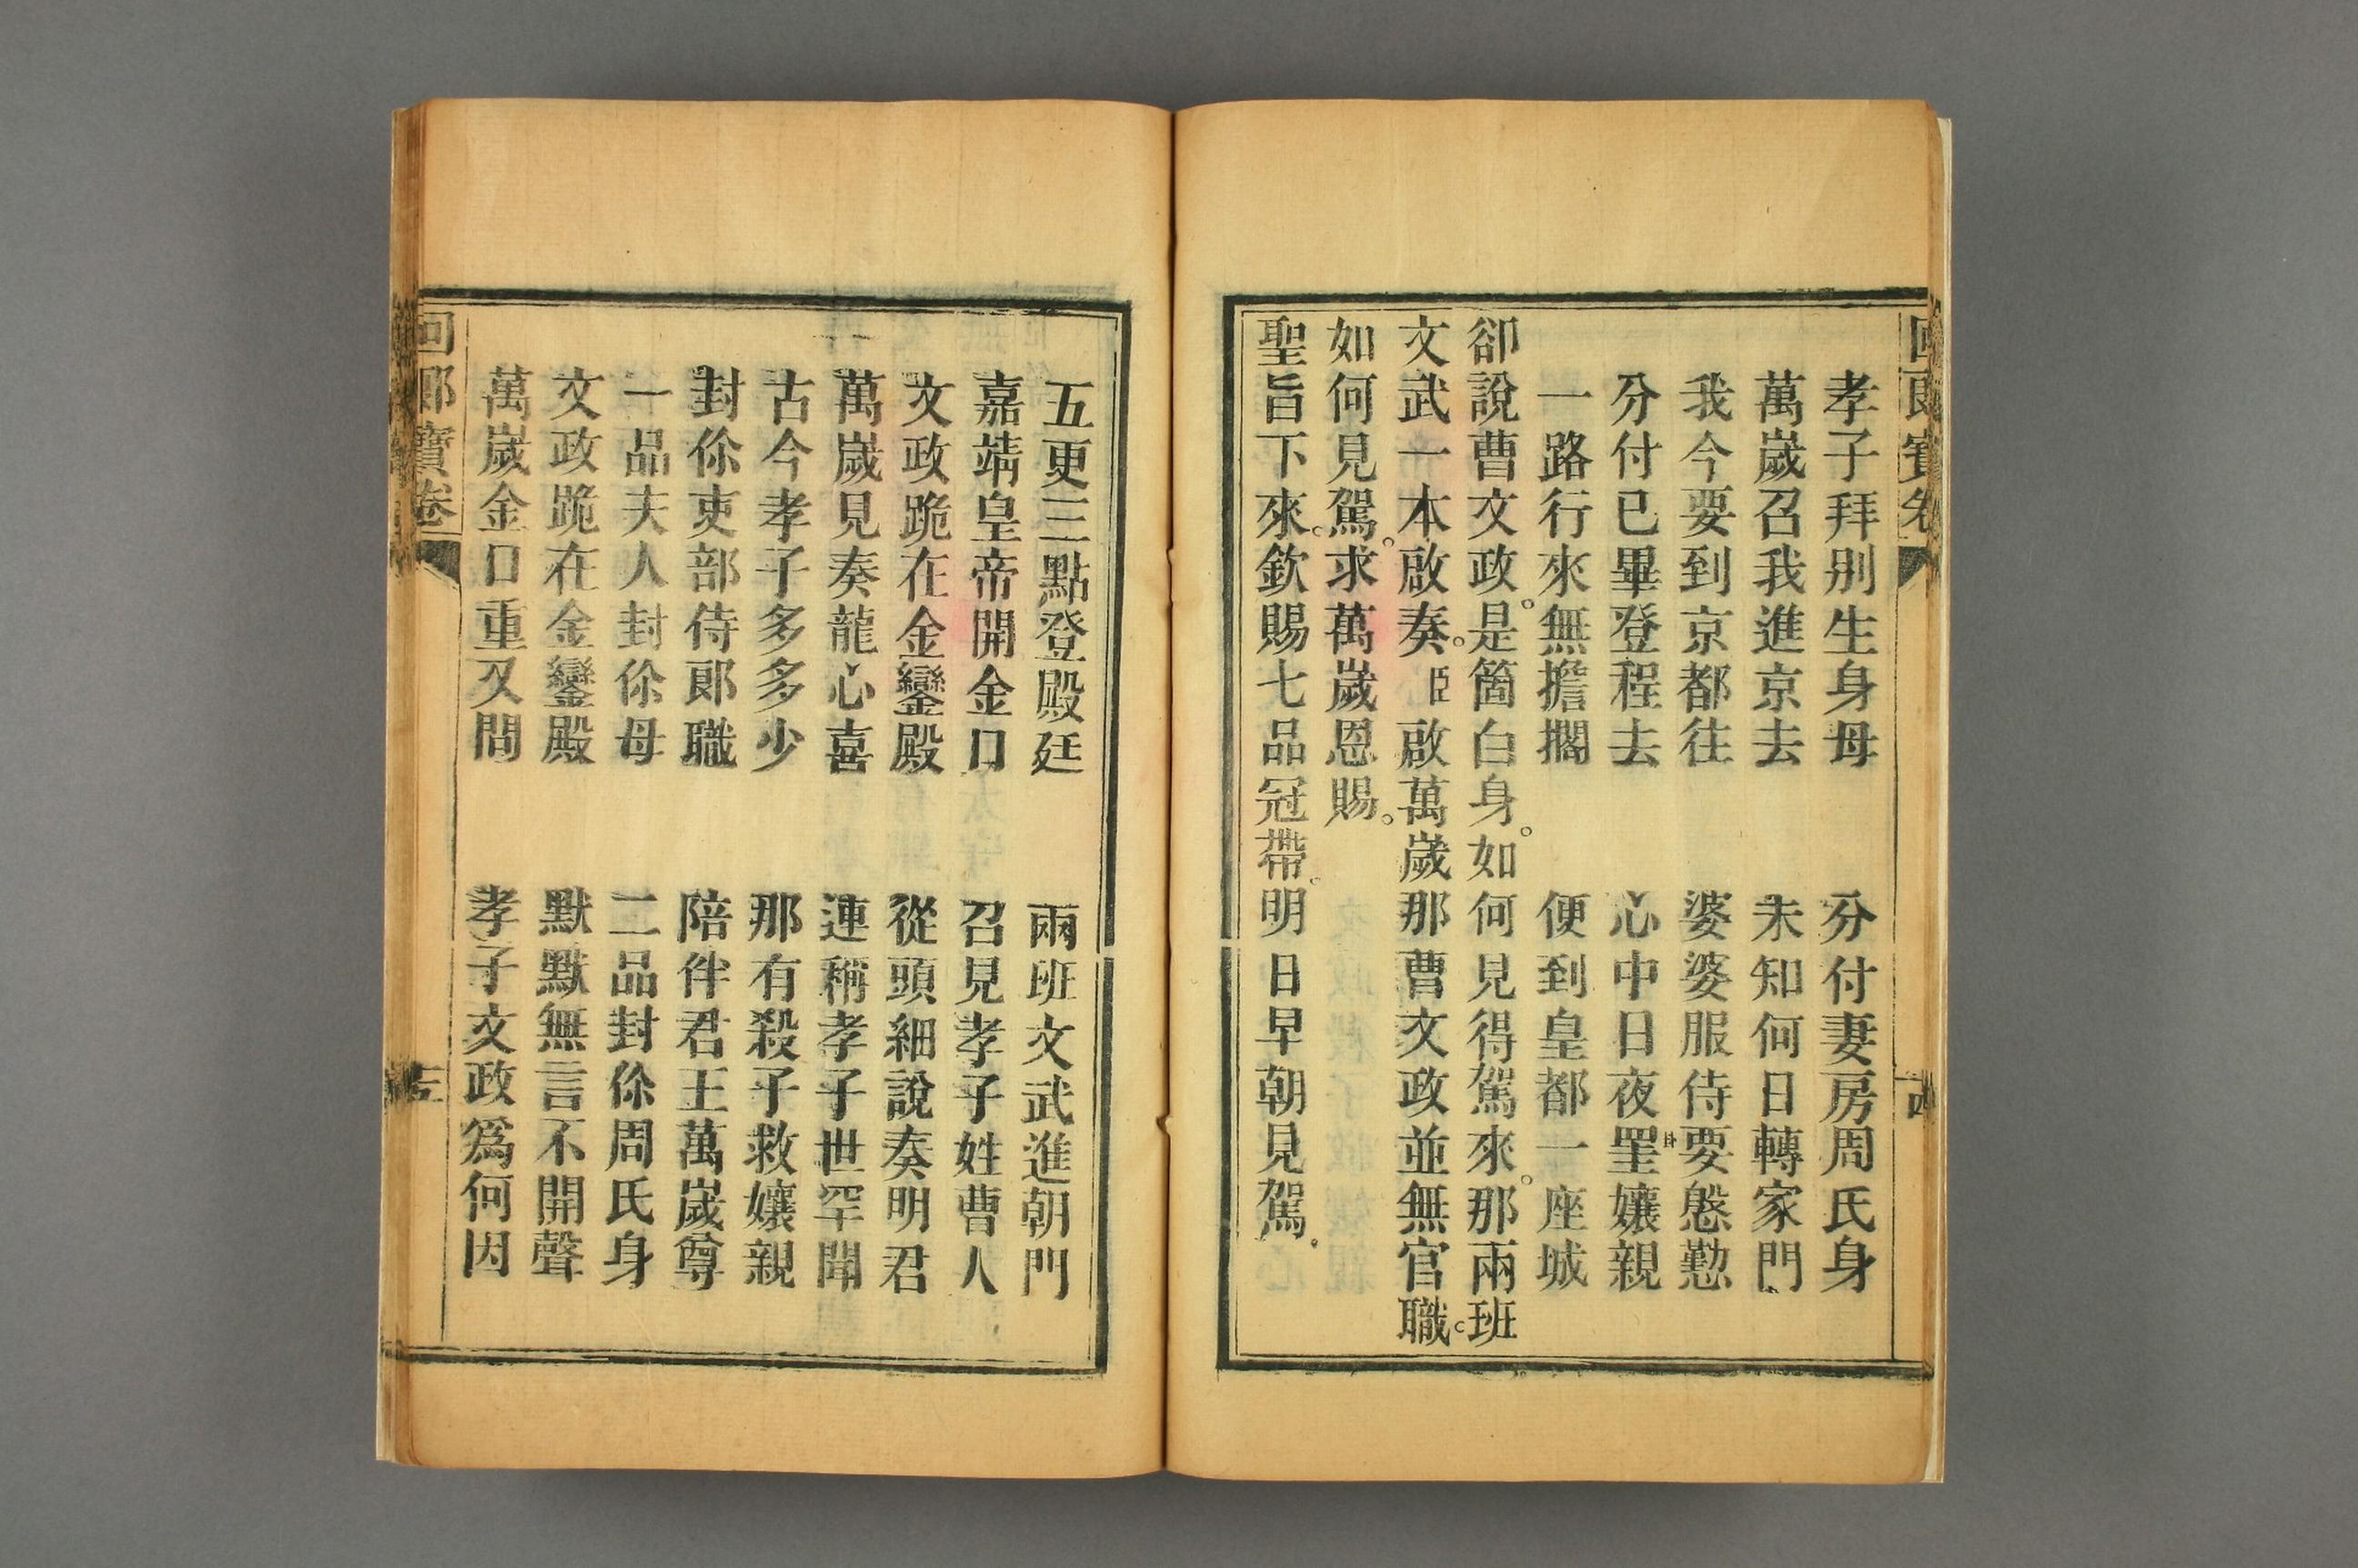 孝子拜別生身母　分付妻房周氏身
萬歲召我進京去　未知何日轉家門
我今要到京都往　婆婆服侍要慇懃
分付已畢登程去　心中日夜罣孃親
一路行來無擔擱　便到皇都一座城
卻說曹文政。是箇白身。如何見得駕來。那兩班
文武一本啟奏。臣啟萬歲那曹文政並無官職。
如何見駕。求萬歲恩賜。
聖旨下來。欽賜七品冠帶。明日早朝見駕。
五更三點登殿廷　兩班文武進朝門
嘉靖皇帝開金口　召見孝子姓曹人
文政跪在金鑾殿　從頭細說奏明君
萬歲見奏龍心喜　連稱孝子世罕聞
古今孝子多多少　那有殺子救孃親
封伱吏部侍郎職　陪伴君王萬歲尊
一品夫人封伱母　二品封伱周氏身
文政跪在金鑾殿　默默無言不開聲
萬歲金口重又問　孝子文政爲何因
回郎寶卷